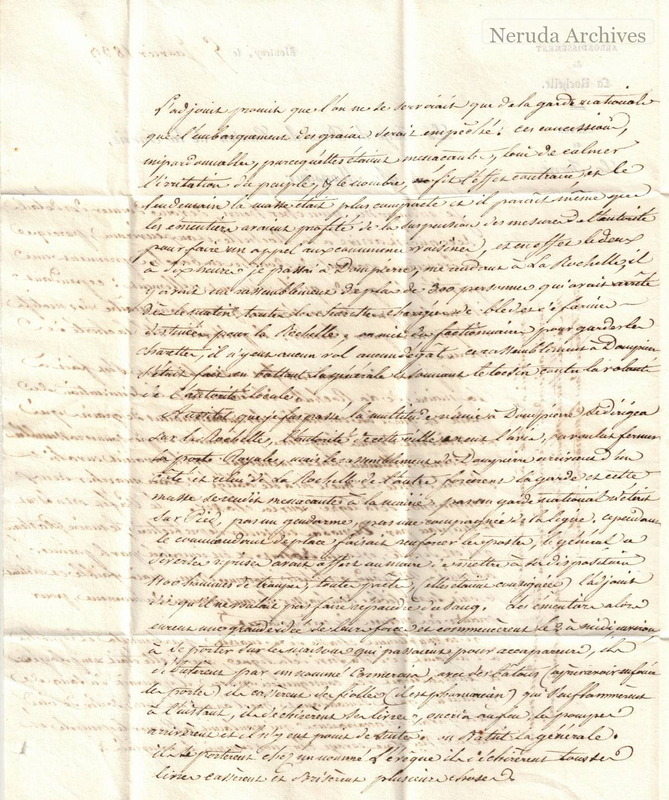 Neruda Archives
ARRONDISSEMENT
La Rochelle.
L'adjoint promit que l'on ne se servirait que de la garde nationale
que l'embarquement des grains serait empêché: ces concessions,
impardonnables, parcequ'elles étaient menacantes, loin de calmer
l'irritation du peuple, fit l'effet contraire, et le
lendemain la masse était plus compacte et il parait même que
les émeutiers avaient profité de la suspension des mesures de l'autorité
pour faire un appel aux communes voisines, et en effet le deux
à dix heures je passai à Dompierre, me rendant à La Rochelle, il
y avait un rassemblement de plus de 300 personnes qui avait arrêté
dès le matin toutes les charettes chargées de bled et de farine
destinées pour la Rochelle, on mit des factionnaires pour garder les
charettes, il n'y eut aucun vol aucun dégât. ce rassemblement à Dompierre
s'était fait en battant la générale et sonnant le tocsin contre la volonté
de l'autorité locale
Aussitôt que je fus passé la multitude réunie à Dompierre se dirigea
sur la Rochelle, l'autorité de cette ville en eut l'avis, fermer
la porte Royale, mais le rassemblement de Dompierre arrivant d'un
côté et celui de La Rochelle de l'autre forcèrent la garde et cette
masse se rendit menacante à la mairie, pas un garde national n'était
sur pied, pas un gendarme, pas une compagnie de la ligne. cependant
le commandant de place faisait renforcer les postes, le général a
diverses reprises avait offert au maire de mettre à sa disposition
1100 hommes de troupes, toute prete, elles étaient consignées l'adjoint
dit qu'il ne voulait pas faire répandre de sang. Les émeutiers alors
eurent une grande idée de leur force et commencèrent le 2 à midi environ
à se porter sur les maisons qui passaient pour accapareurs, ils
débutèrent par un nommé, avec des bâtons (après avoir enfoncé
les portes) ils cassèrent ses fioles (il est pharmacien) qui s'enflammèrent
à l'instant, ils déchirèrent ses livres, on cria au feu, les pompes
arrivèrent et il n'y eut point de suite. on battit la générale.
ils se portèrent chez un nommé L'évêque ils déchirèrent tous ses
livres cassèrent et brisèrent plusieurs choses.